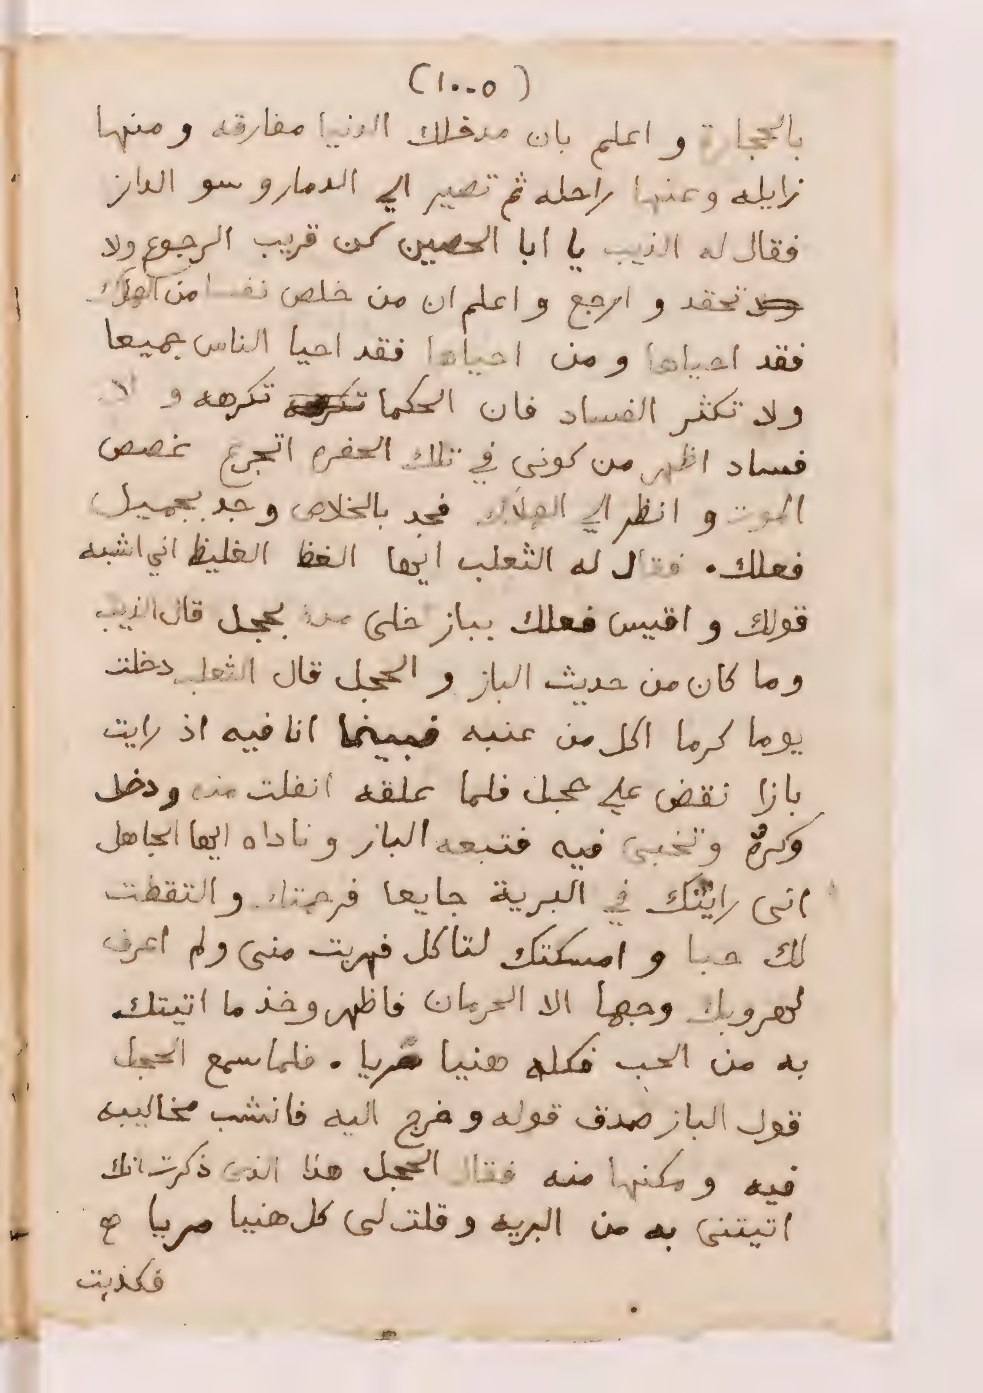 (١٠٠٥)
بالحجارة و اعلم بان مدخلك الدنيا مفارقه و منها
زايله وعنها راحله ثم تصير الي الدمار و سو الدار
فقال له الذيب يا ابا الحصين كن قريب الرجوع ولا
تحقد و ارجع و اعلم ان من خلص نفسا من الهلاك
فقد احياها و من احياها فقد احيا الناس جميعا
ولا تكثر الفساد فان الحكما تكرهه و لا
فساد اظهر من كونى في تلك الحفره اتجرع غصص
الموت و انظر الي الهلاك فجد بالخلاص وجد بجميل
فعلك . فقال له الثعلب ايها الفظ الغليظ اني اشبه
قولك و اقيس فعلك بباز خلى بحجل قال الذيب
وما كان من حديث الباز و الحجل قال الثعلب دخلت
يوما كرما اكل من عنبه فبينما انا فيه اذ رايت
بازا نقض علي حجل فلما علقه انفلت منه ودخل
وكره وتخبى فيه فتبعه الباز وناداه ايها الجاهل
انى رايتك في البرية جايعا فرحمتك والتقطت
لك حبا و امسكتك لتاكل فهربت منى ولم اعرف
لهروبك وجها الا الحرمان فاظهر وخذ ما اتيتك
به من الحب فكله هنيا مريا . فلما سمع الحجل
قول الباز صدق قوله و خرج اليه فانشب مخاليبه
فيه و مكنها منه فقال الحجل هذا الذى ذكرت انك
اتيتنى به من البريه و قلت لى كل هنيا مريا
فكذبت